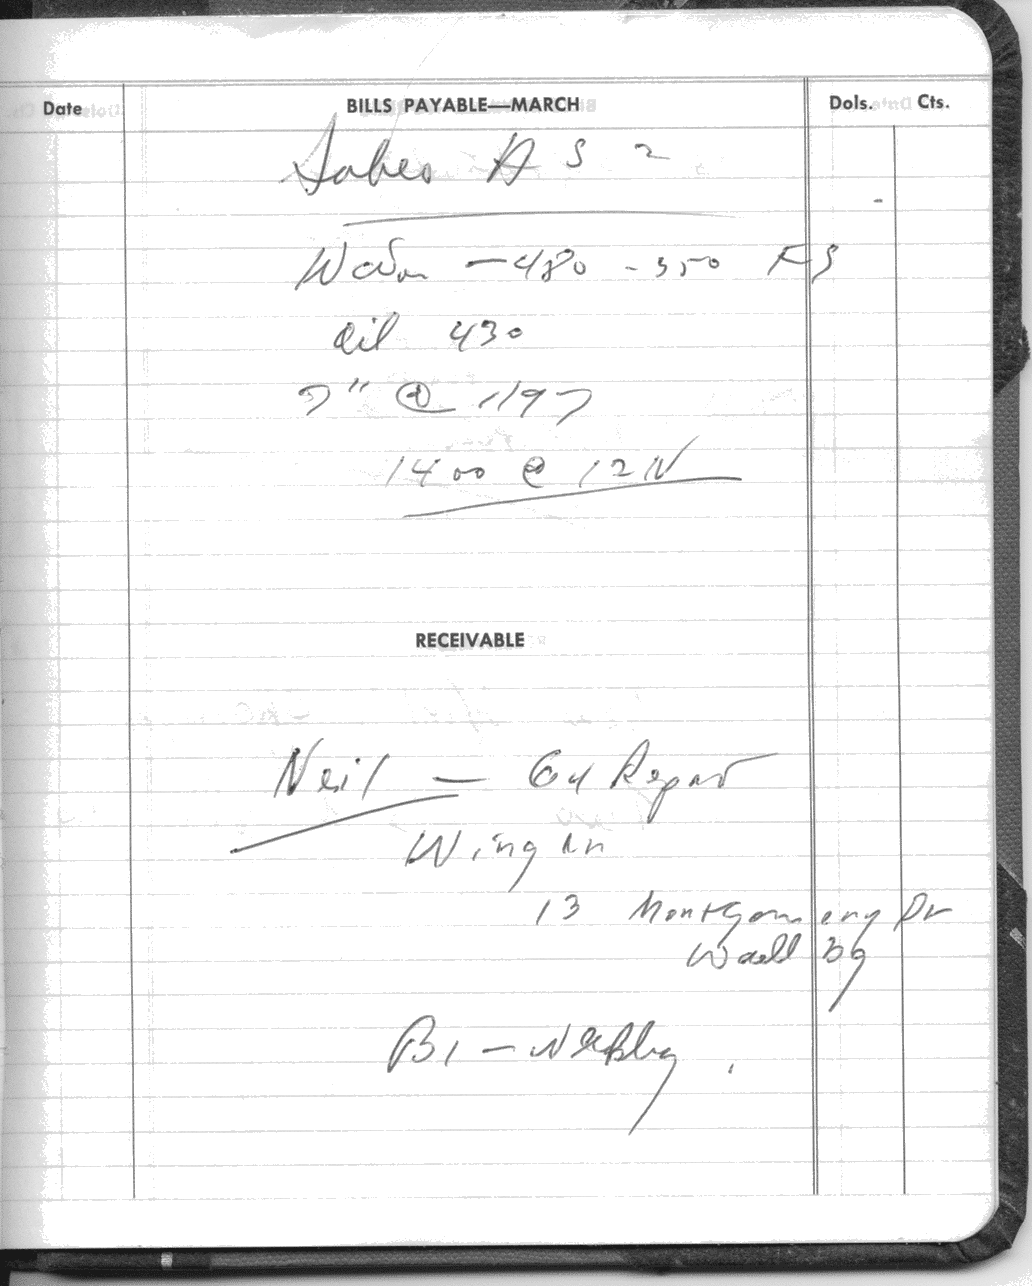 Date BILLS PAYABLE—MARCH Dols. Cts.
A S 2
Water - 480 - 350 FS
Oil 430
7" @ 1197
1400 @ 12 N
RECEIVABLE
Neil — Repar
Wing
13 Montgomery Dr
Bi - Weekly